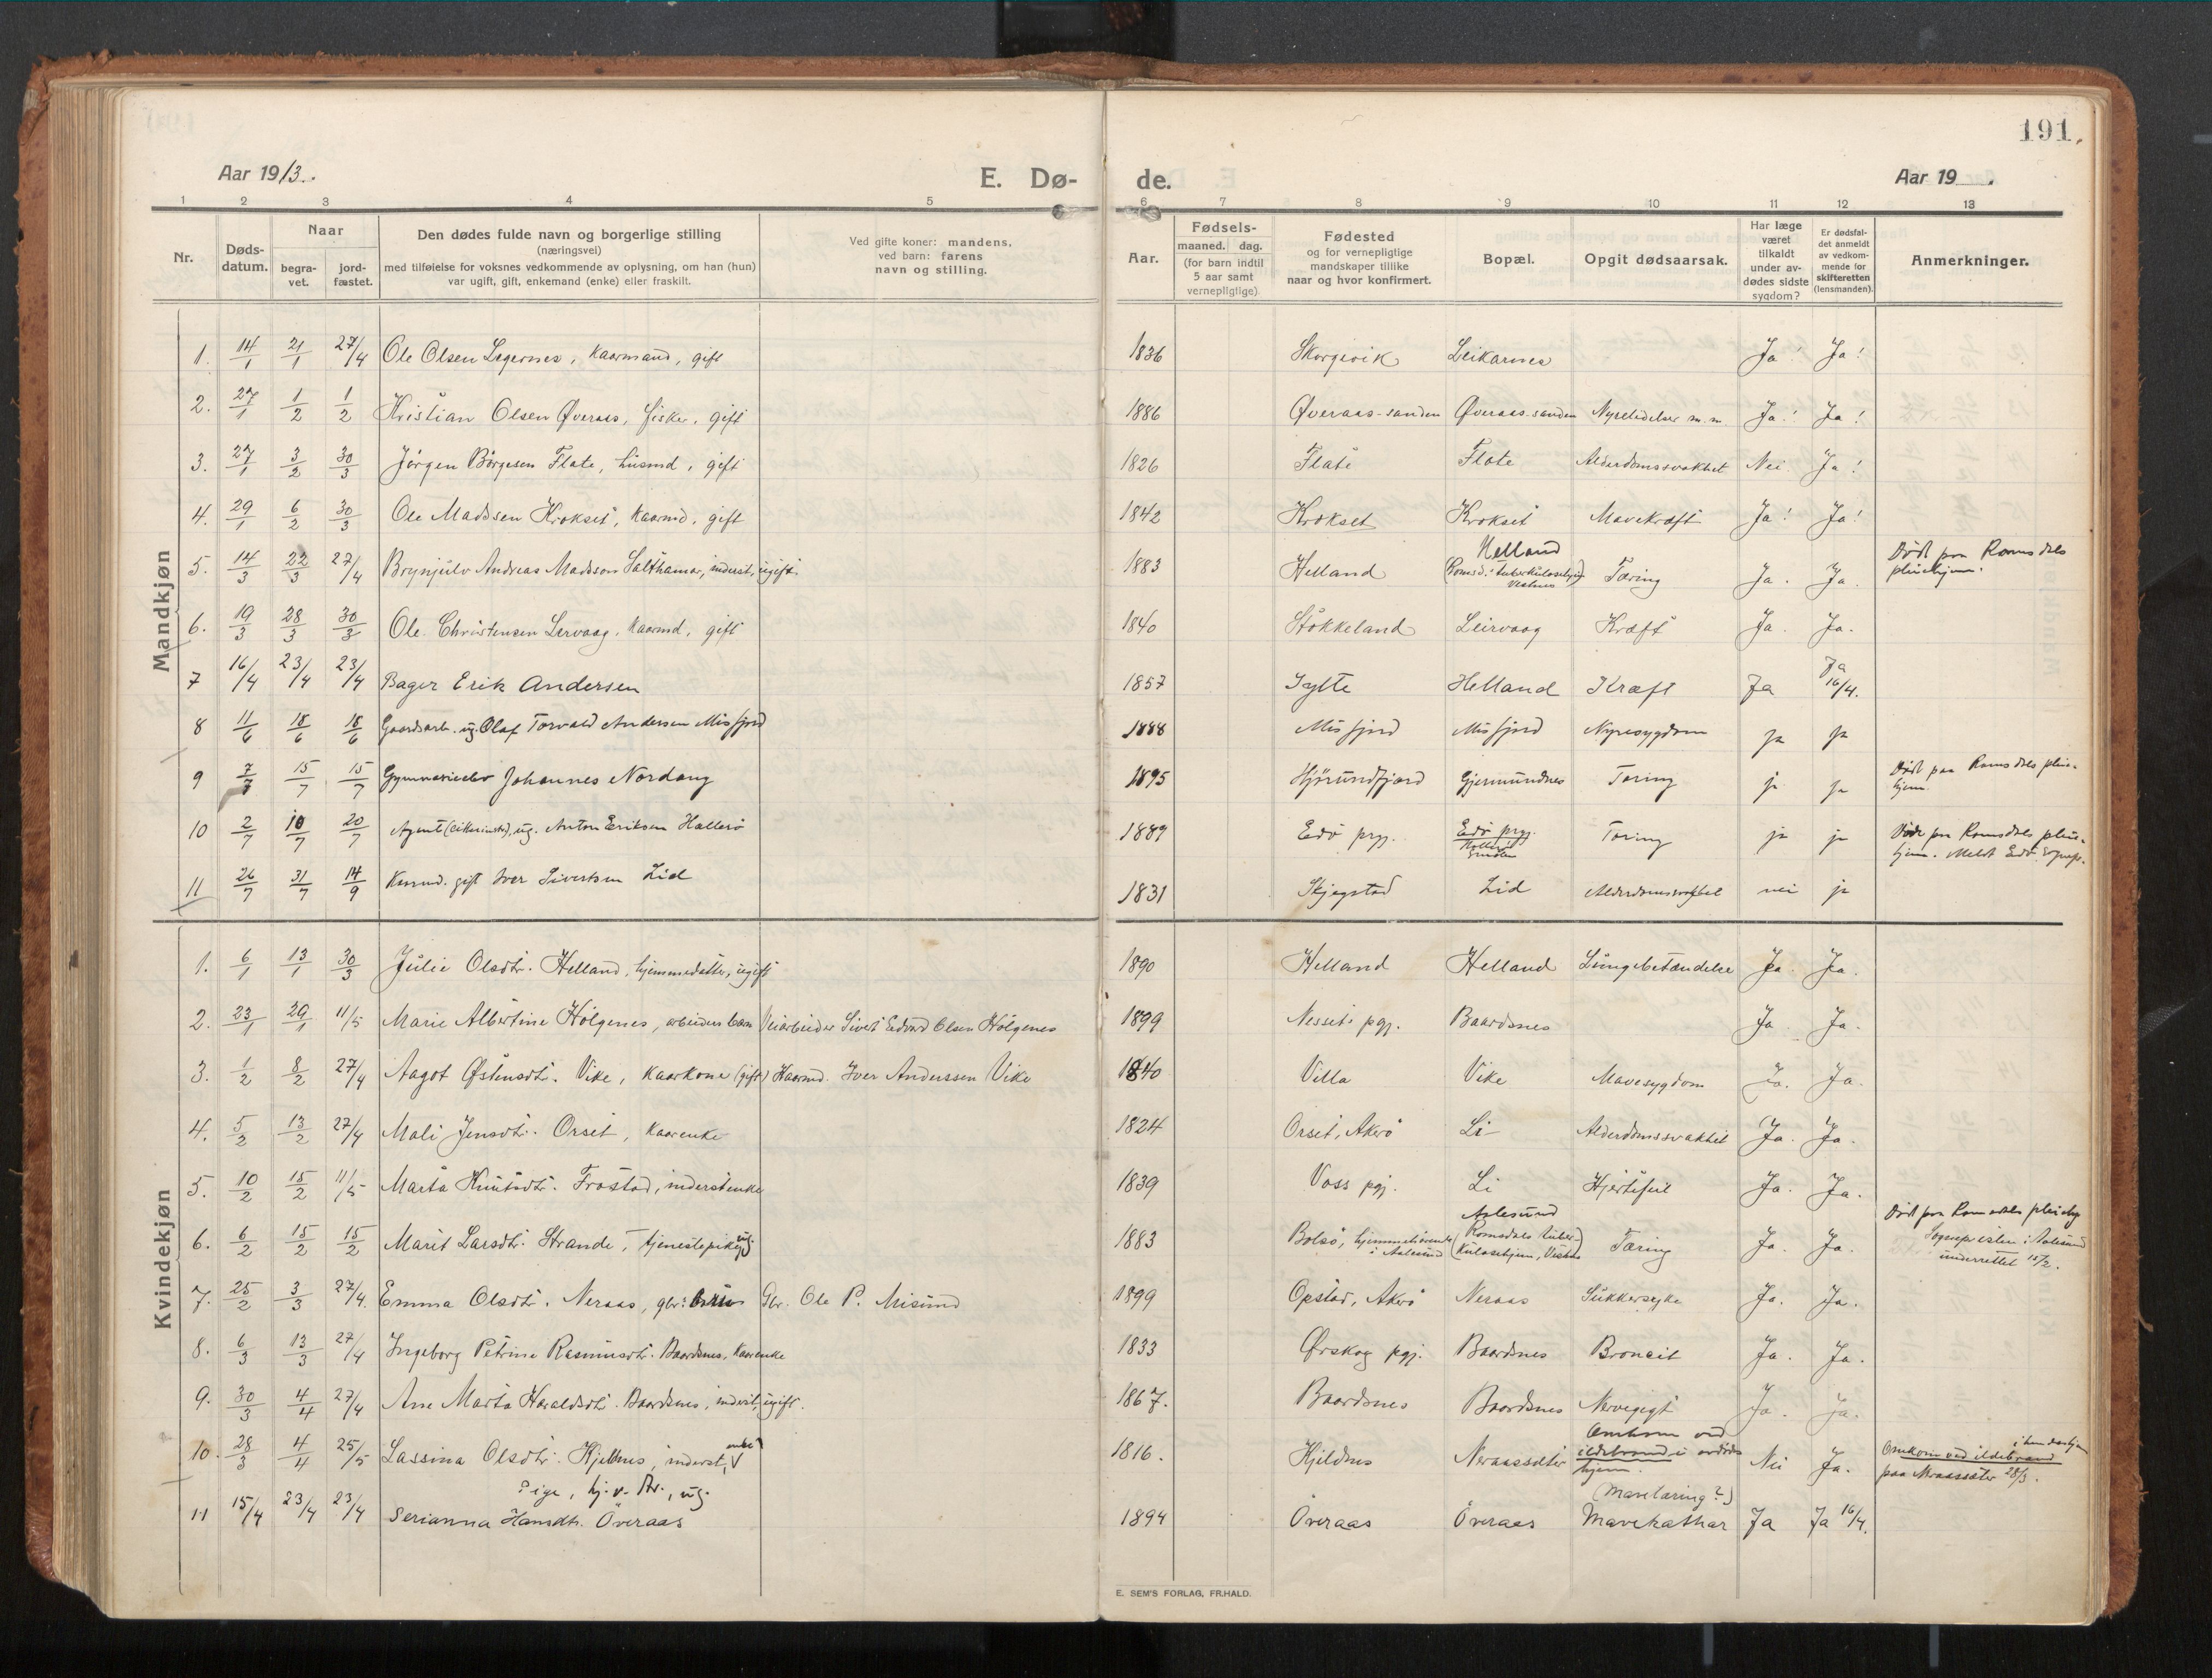 191.
Aar 1913.
E. Dø-
de.
Aar 19 .
1 2 3 4 5 6 7 8 9 10 11 12 13
Nr.
Døds-datum.
Naar
begra-vet.
jord-fæstet.
Den dødes fulde navn og borgerlige stilling
(næringsvei)
med tilføielse for voksnes vedkommende av oplysning, om han (hun)
var ugift, gift, enkemand (enke) eller fraskilt.
Ved gifte koner: mandens,
ved barn: farens
navn og stilling.
Aar.
Fødsels-
maaned. dag.
(for barn indtil
5 aar samt
vernepligtige)
Fødested
og for vernepligtige
mandskaper tillike
naar og hvor konfirmert.
Bopæl.
Opgit dødsaarsak.
Har læge
været
tilkaldt
under av-
dødes sidste
sygdom?
Er dødsfal-
det anmeldt
av vedkom-
mende for
skifteretten
(lensmanden).
Anmerkninger.
Mandkjøn
1. 14/1 21/1 27/4 Ole Olsen Legernes, kaarmand, gift 1836 Skorgevik Leikarnes Ja! Ja!
2. 27/1 1/2 1/2 Kristian Olsen Øveraas, fisker, gift 1886 Øveraas-sanden Øveraas-sanden Nyrelidelse m.m. Ja! Ja!
3. 27/1 3/2 30/3 Jørgen Børgesen Flate, husmd, gift 1826 Flate Flate Alderdomssvakhet Nei Ja!
4. 29/1 6/2 30/3 Ole Madssen Krokset, kaarmd, gift 1842 Krokset Krokset Mavekræft Ja! Ja!
5. 14/3 22/3 27/4 Brynjulv Andreas Madsson Salthamar, inderst, ugift 1883 Helland Helland (Romsd.s tuberkulosehjem Vestnes) Tæring Ja. Ja. Død paa Romsdals pleiehjem.
6. 19/3 28/3 30/3 Ole Christensen Lervaag, kaarmd, gift 1840 Stokkeland Leirvaag Kræft Ja. Ja.
7 16/4 23/4 23/4 Bager Erik Andersen 1857 Sylte Helland Kræft Ja Ja 16/4.
8 11/6 18/6 18/6 Gaardsarb. ug. Olaf Torvald Andersen Misfjord 1888 Misfjord Misfjord Nyresygdom ja ja
9 7/7 15/7 15/7 Gymnasieelev Johannes Nordang 1895 Hjørundfjord Gjermundnes Tæring ja ja Død paa Romsdals pleiehjem.
10 2/7 10/7 20/7 Agent, ug. Anton Eriksen Hallerø 1889 Edø prgj. Edø prgj. Tæring ja ja Død paa Romsdals pleiehjem. Meldt Edø
11 26/7 31/7 14/9 Kaarmd. gift Iver Sivertsen Lid 1831 Skjegstad Lid Alderdomssvakhet nei ja
Kvindekjøn
1. 6/1 13/1 30/3 Julie Olsdtr. Helland, hjemmedatter, ugift 1890 Helland Helland Lungebetændelse Ja. Ja.
2. 23/1 29/1 11/5 Marie Albertine Holgenes, arbeiders barn Veiarbeider Sivert Edvard Olsen Holgenes 1899 Nesset pgj. Baardsnes Ja. Ja.
3. 1/2 8/2 27/4 Aagot Østensdtr. Vike, kaarkone (gift) Kaarmd. Iver Anderssen Vike 1840 Villa Vike Mavesygdom Ja. Ja.
4. 5/2 13/2 27/4 Mali Jensdtr. Orset, kaarenke 1824 Orset, Akerø Li Alderdomssvakhet Ja. Ja.
5. 10/2 15/2 11/5 Marta Knutsdtr. Frostad, inderstenke 1839 Voss pgj. Li Hjertefeil Ja. Ja.
6. 6/2 15/2 15/2 Marit Larsdtr. Strande, tjenestepike ug. 1883 Bolsø, hjemmehørende i Aalesund Aalesund (Romsdals tuberkulosehjem, Vestnes) Tæring Ja. Ja. Død paa Romsdals pleiehj. Sognepresten i Aalesund underrettet 15/2.
7. 25/2 3/3 27/4. Emma Olsdtr. Neraas, gbr: barn Gbr. Ole P. Misund 1899 Opstad, Akerø Neraas Sukkersyke Ja. Ja.
8. 6/3 13/3 27/4 Ingeborg Petrine Rasmusdtr. Baardsnes, kaarenke 1833 Ørskog pgj. Baardsnes Broncit Ja. Ja.
9. 30/3 4/4 27/4 Ane Marta Haraldsdtr. Baardsnes, inderst, ugift. 1867. Baardsnes Baardsnes Nervegigt Ja. Ja.
10. 28/3 4/4 25/5 Lassina Olsdtr. Kjeldnes, inderst, enke 1816. Kjeldnes Neraassæter Omkom ved ildebrand i avdødes hjem. Nei Ja. Omkom ved ildebrand i hendes hjem paa Neraassæter 28/3.
11 15/4 23/4 23/4 Pige, hj. v. Br., ug. Serianna Hansdtr. Överaas 1894 Överaas Överaas (Mavetæring?) Mavekathar Ja Ja 16/4.
E. SEM'S FORLAG, FR.HALD.